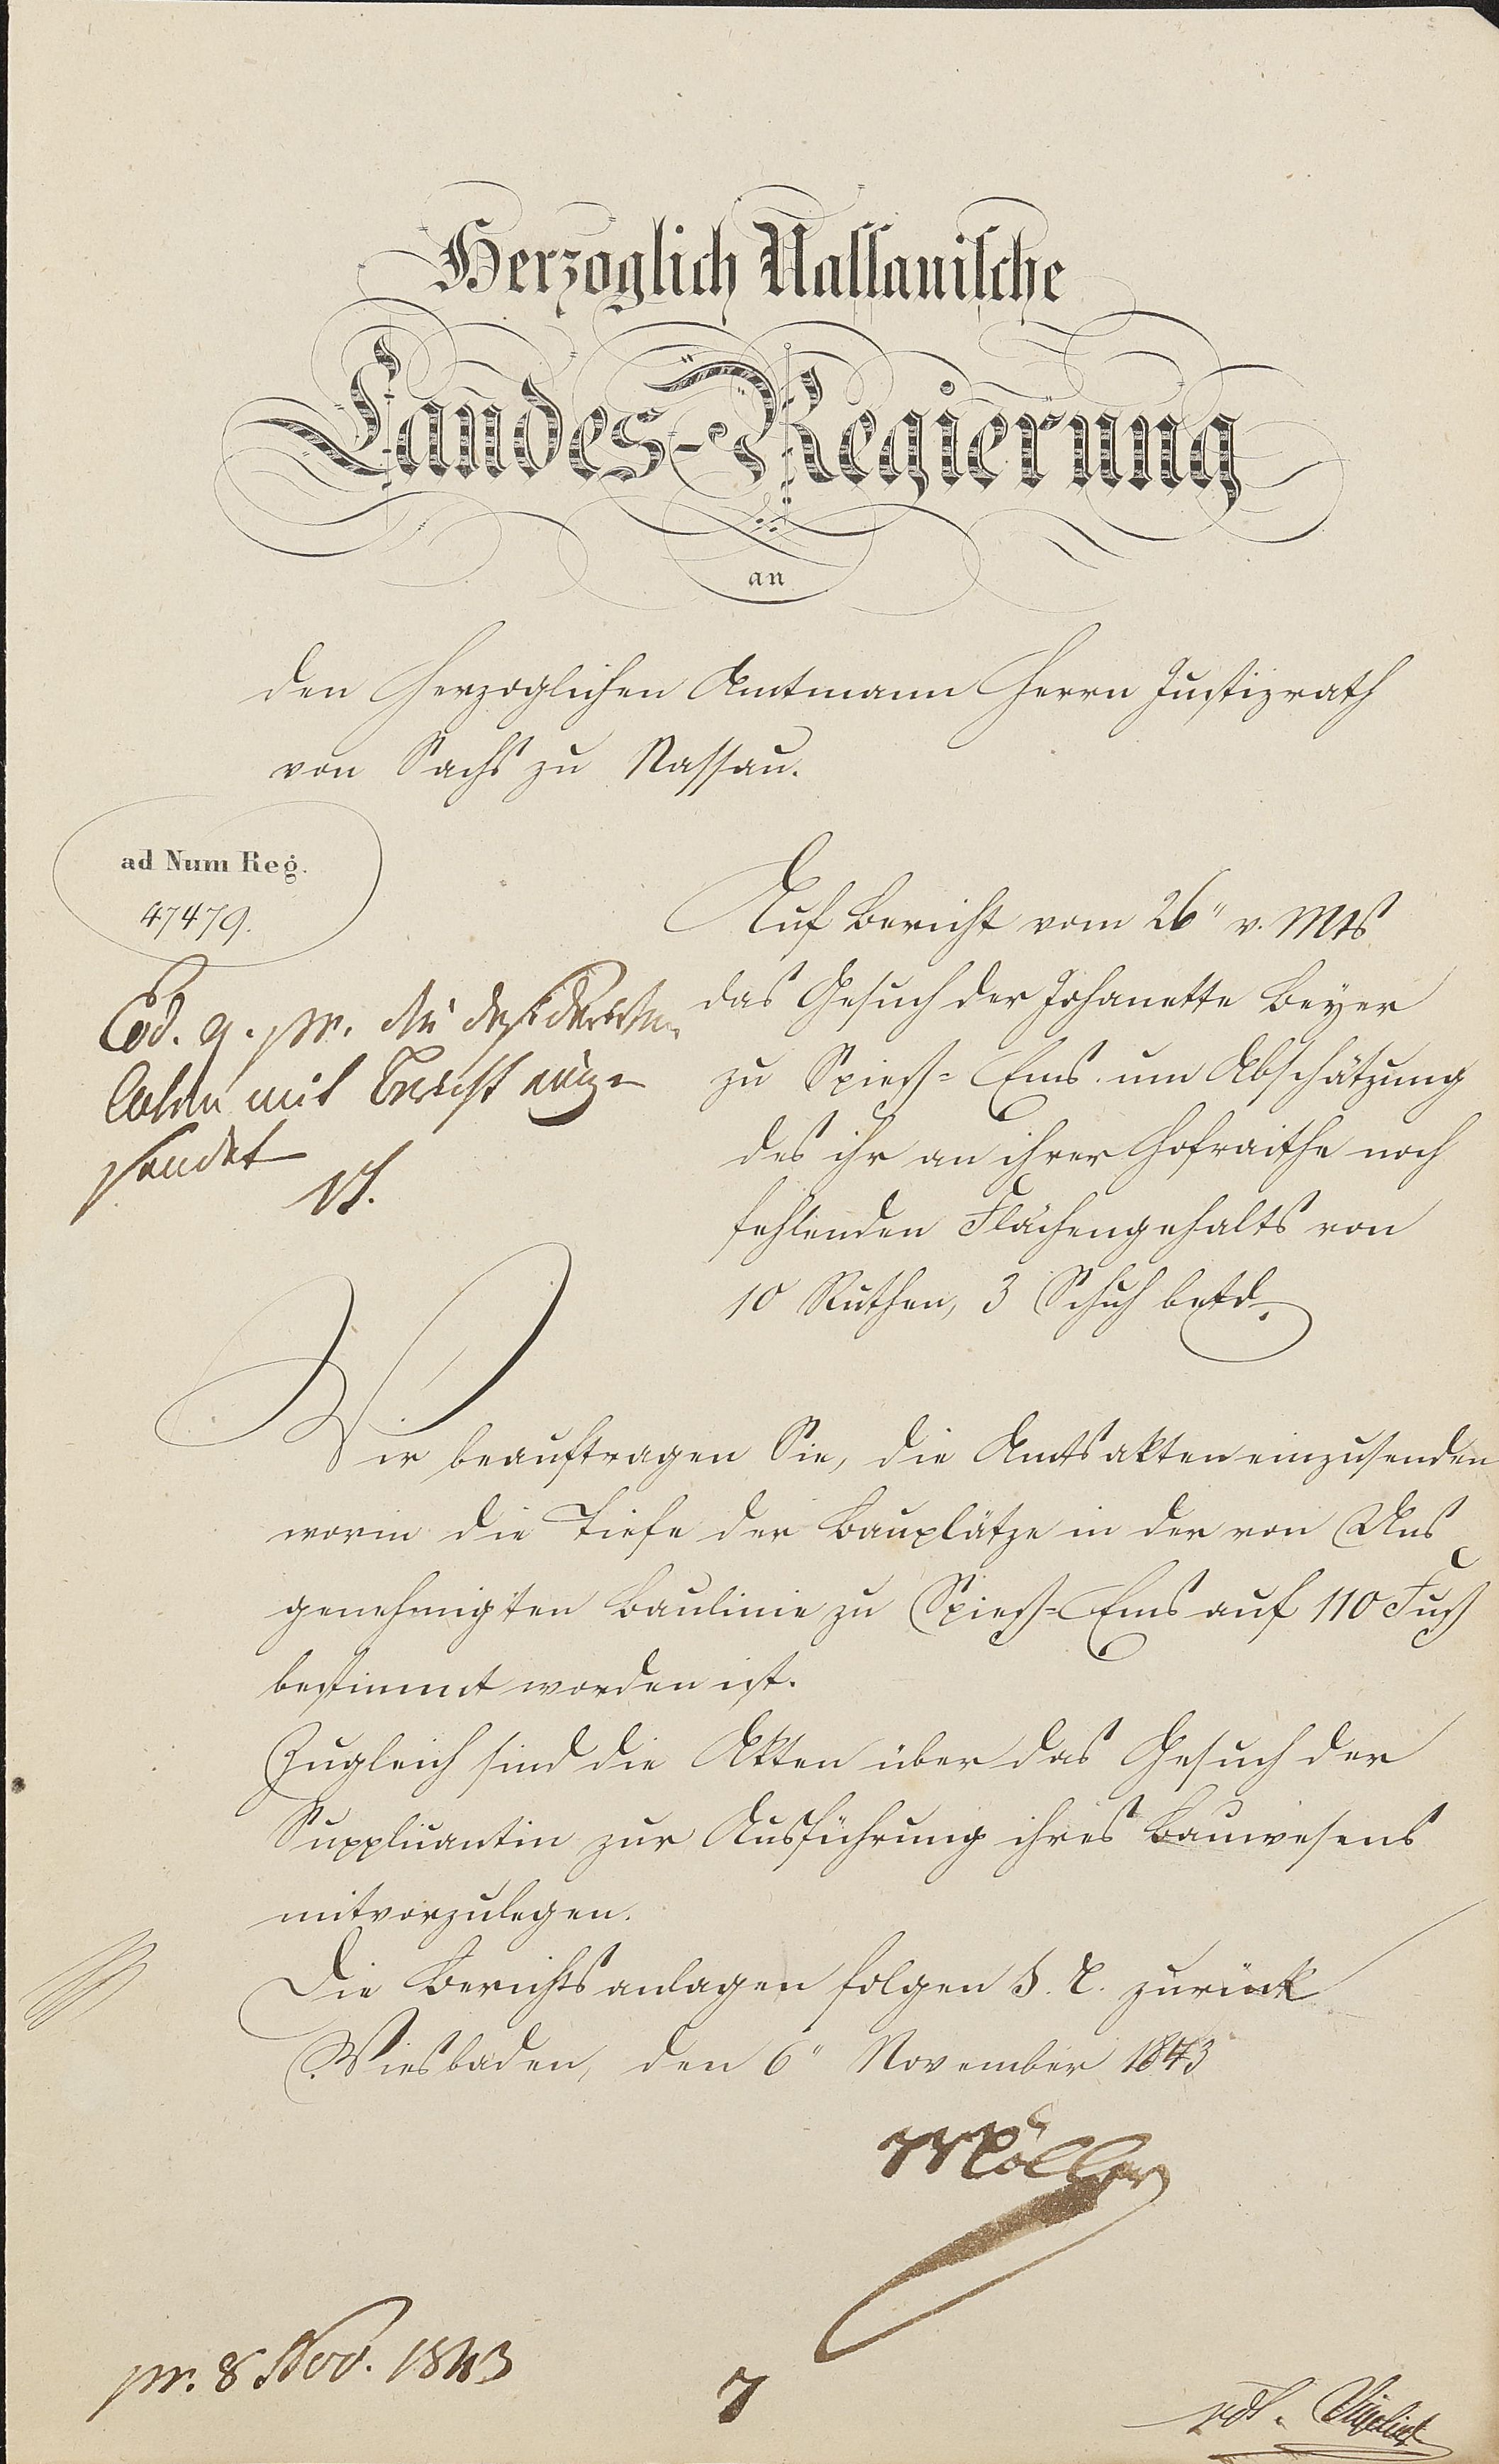 Herzoglich Nassauische
Landes-Regierung
an
den Herzoglichen Amtmann Herrn Justizrath
von Sachs zu Nassau.
ad Num Reg.
47479.
Auf Bericht vom 26" v. Mts
das Gesuch der Johanette Beyer
zu Spieß-Ems um Abschätzung
des ihr an ihrer Hofraithe noch
fehlenden Flächengehalts von
10 Ruthen, 3 Schuh betd.
Eod. q. pr. die desiderirten
Akten mit Bericht einge-
sendet
Wir beauftragen Sie, die Amtsakten einzusenden
worin die Tiefe der Bauplätze in der von Uns
genehmigten Baulinie zu Spieß-Ems auf 110 Fuß
bestimmt worden ist.
Zugleich sind die Akten über das Gesuch der
Supplicantin zur Ausführung ihres Bauwesens
mitvorzulegen.
Die Berichtsanlagen folgen S. R. zurück
Wiesbaden, den 6" November 1843
Möller
pr. 8 Nov. 1843
7
vdt.